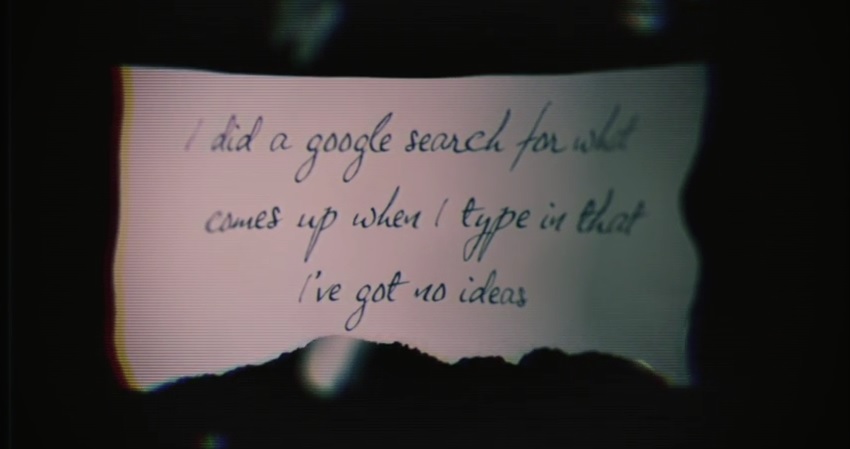 I did a google search for what
comes up when I type in that
I've got no ideas